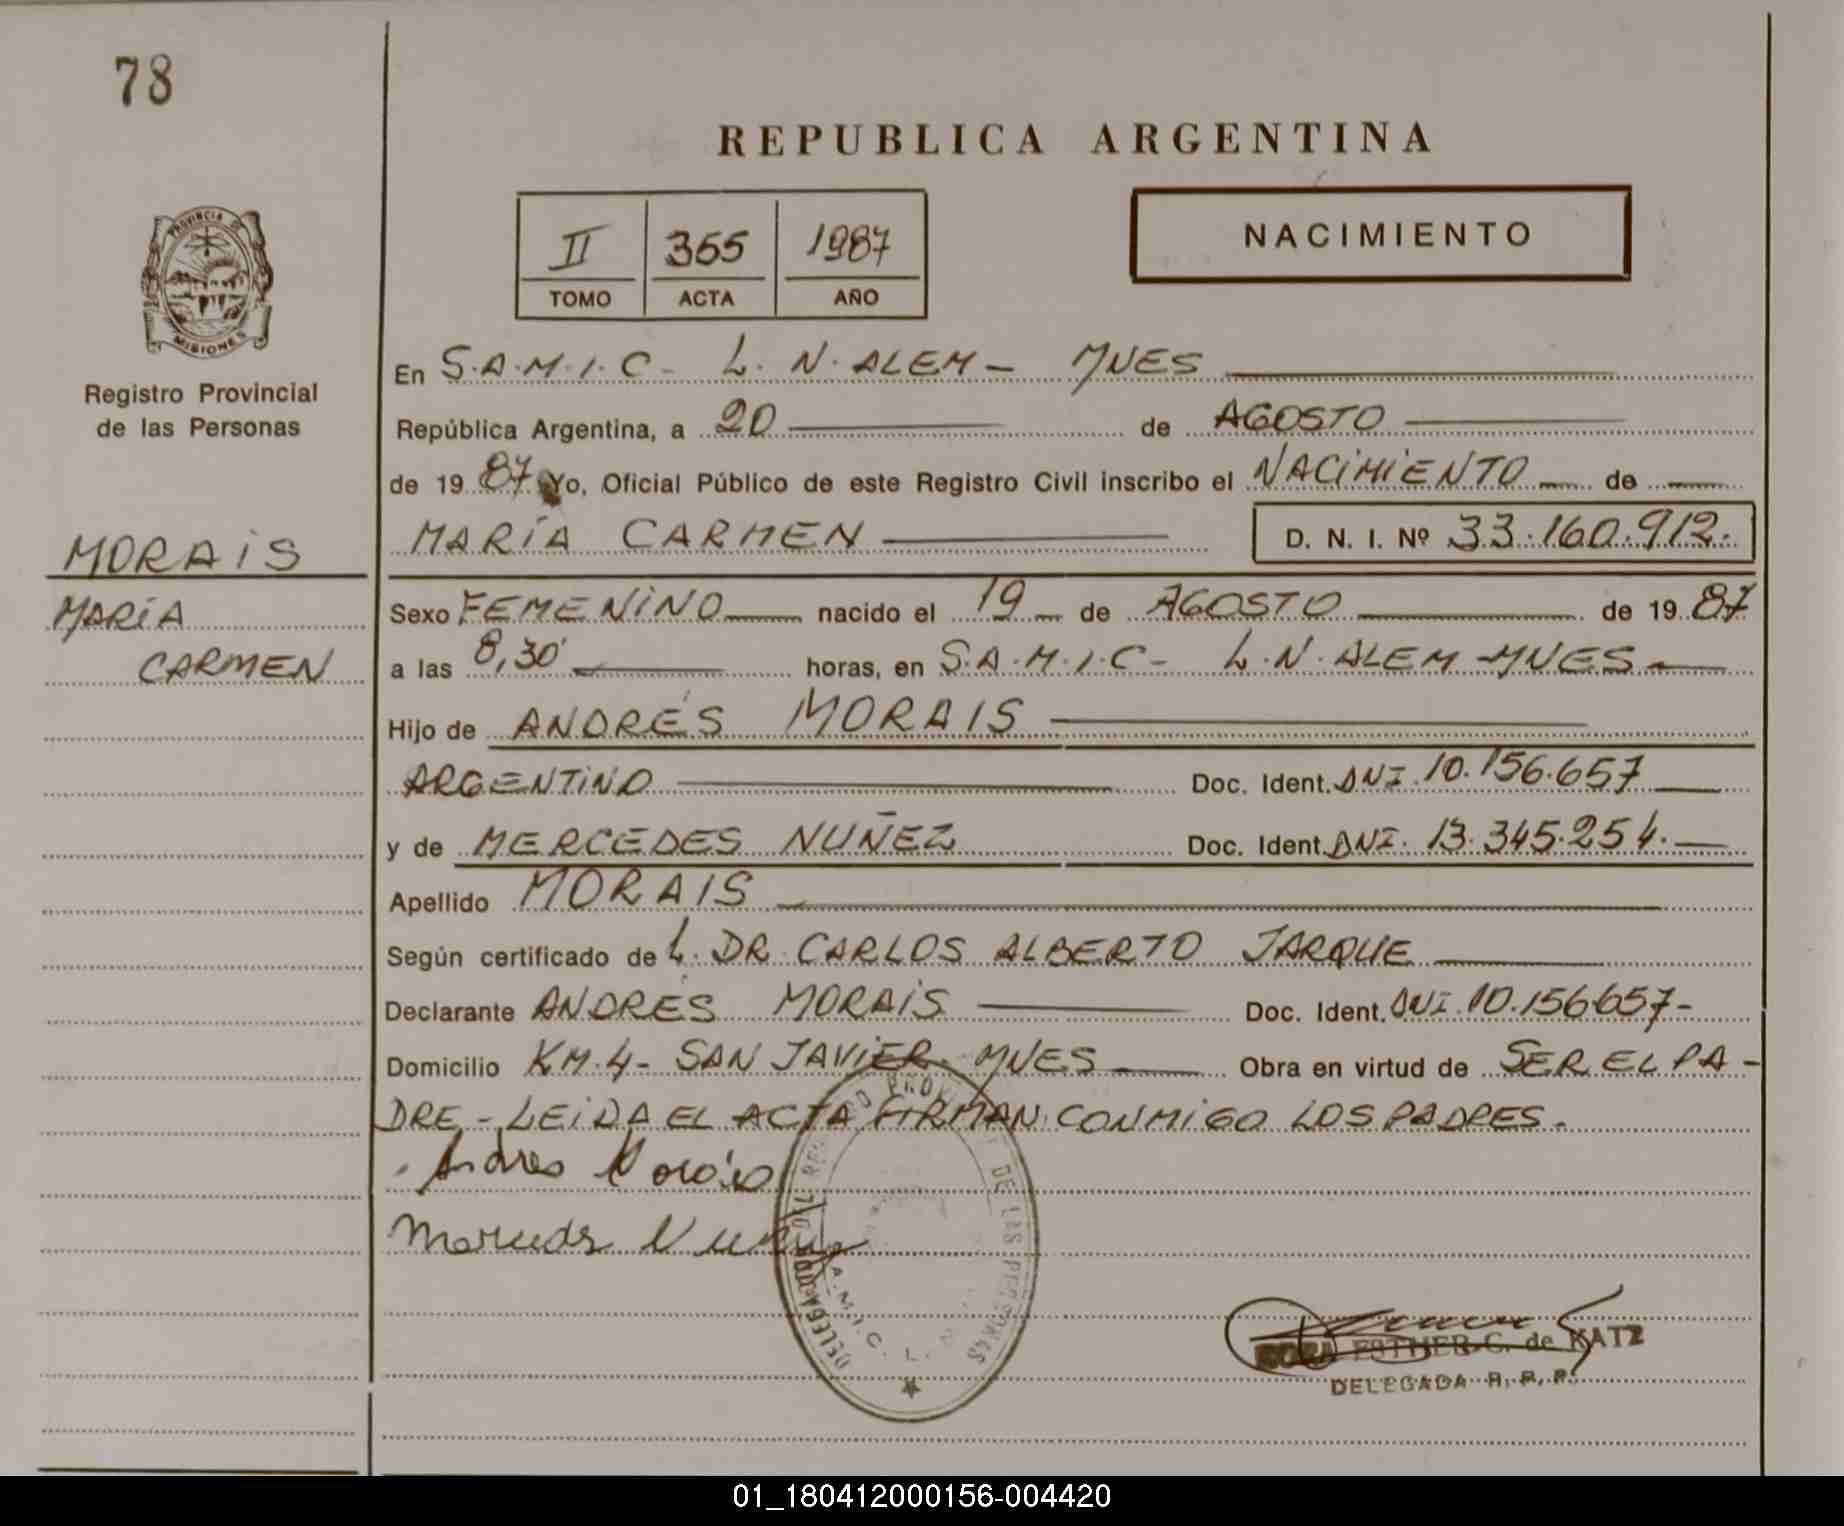 78
REPUBLICA ARGENTINA
II 355 1987
TOMO ACTA AÑO
NACIMIENTO
PROVINCIA DE
MISIONES
Registro Provincial
de las Personas
MORAIS
MARÍA
CARMEN
En S.A.M.I.C - L. N. ALEM - MNES
República Argentina, a 20 de AGOSTO
de 19 87 Yo, Oficial Público de este Registro Civil inscribo el NACIMIENTO de
MARÍA CARMEN D. N. I. Nº 33.160.912.
Sexo FEMENINO nacido el 19 de AGOSTO de 19 87
a las 8,30 horas, en S.A.M.I.C - L.N. ALEM - MNES
Hijo de ANDRÉS MORAIS
ARGENTINO Doc. Ident. DNI. 10.156.657
y de MERCEDES NUÑEZ Doc. Ident. DNI. 13.345.254.
Apellido MORAIS
Según certificado de L. DR. CARLOS ALBERTO JARQUE
Declarante ANDRÉS MORAIS Doc. Ident. DNI. 10.156657-
Domicilio KM.4 - SAN JAVIER. MNES Obra en virtud de SER EL PA-
DRE - LEIDA EL ACTA FIRMAN CONMIGO LOS PADRES.
Andres Morais
Mercedes Nuñez
DE LAS PERSONAS
S.A.M.I.C. L. N.
ROSA ESTHER C. de KATZ
DELEGADA R. P. P.
01_180412000156-004420